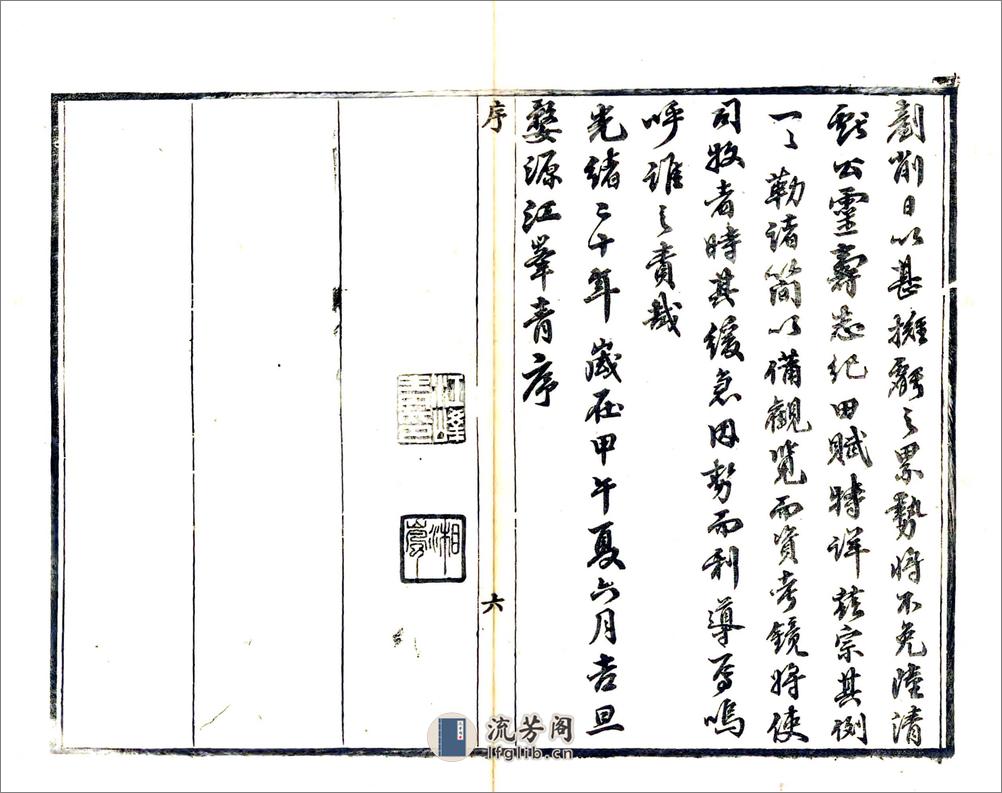 割削日以甚攤虧之累勢將不免陸清
獻公靈壽志紀田賦特詳茲宗其例
一一勒諸簡以備觀覽而資考鏡將使
司牧者時其緩急因勢而利導焉嗚
呼誰之責哉
光緒二十年歲在甲午夏六月吉旦
婺源江峯青序
江峰青印
湘嵐
序
六
流芳阁
lfglib.cn